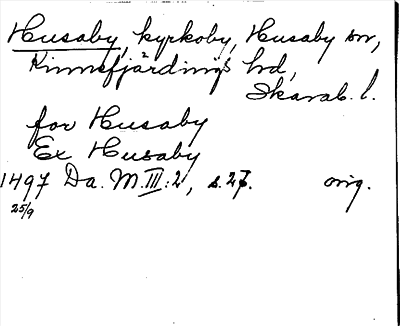 Husaby, kyrkoby, Husaby sn,
Kinnefjärdings hd,
Skarab. l.
for Husaby
Ex Husaby
1497 Da. M. III:2, s. 27. orig.
25/9